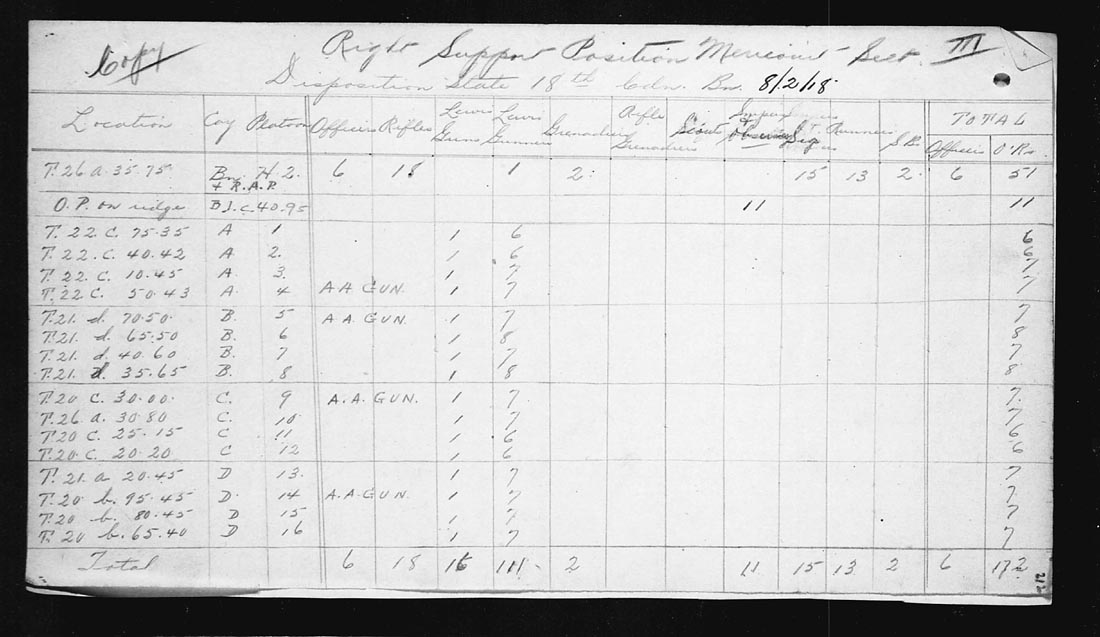 Copy Right Support Position Mericourt Sect. III
Disposition State 18th Cdn. Bn. 8/2/18.
Location Coy Platoon Officers Rifles Lewis Guns Lewis Gunners Grenadiers Rifle Grenadiers Scouts Observers Sig Runners S.B. TOTAL Officers O'Rs.
T.26 a. 35.75 Bn. H.2. 6 18 1 2. 15 13 2. 6 51
+ R.A.P.
O.P. on ridge B1.c.40.95 11 11
T. 22. C. 75.35 A 1 1 6 6
T. 22. C. 40.42 A 2. 1 6 6
T. 22. C. 10.45 A 3. 1 7 7
T. 22 C. 50.43 A. 4 A A GUN. 1 7 7
T.21. d. 70.50. B. 5 A.A. GUN. 1 7 7
T.21. d. 65.50 B. 6 1 8 8
T.21. d. 40.60 B. 7 1 7 7
T.21. d. 35.65 B. 8 1 8 8
T.20 C. 30.00. C. 9 A.A. GUN. 1 7 7.
T.26 a. 30.80 C. 10 1 7 7
T.20 C. 25.15 C 11 1 6 6
T.20. C. 20.20 C 12 1 6 6
T. 21. a 20.45 D 13. 1 7 7
T.20 b. 95.45 D. 14 A.A.GUN. 1 7 7
T.20 b. 80.45 D 15 1 7 7
T.20 b. 65.40 D 16 1 7 7
Total 6 18 16 111 2 11 15 13 2 6 172